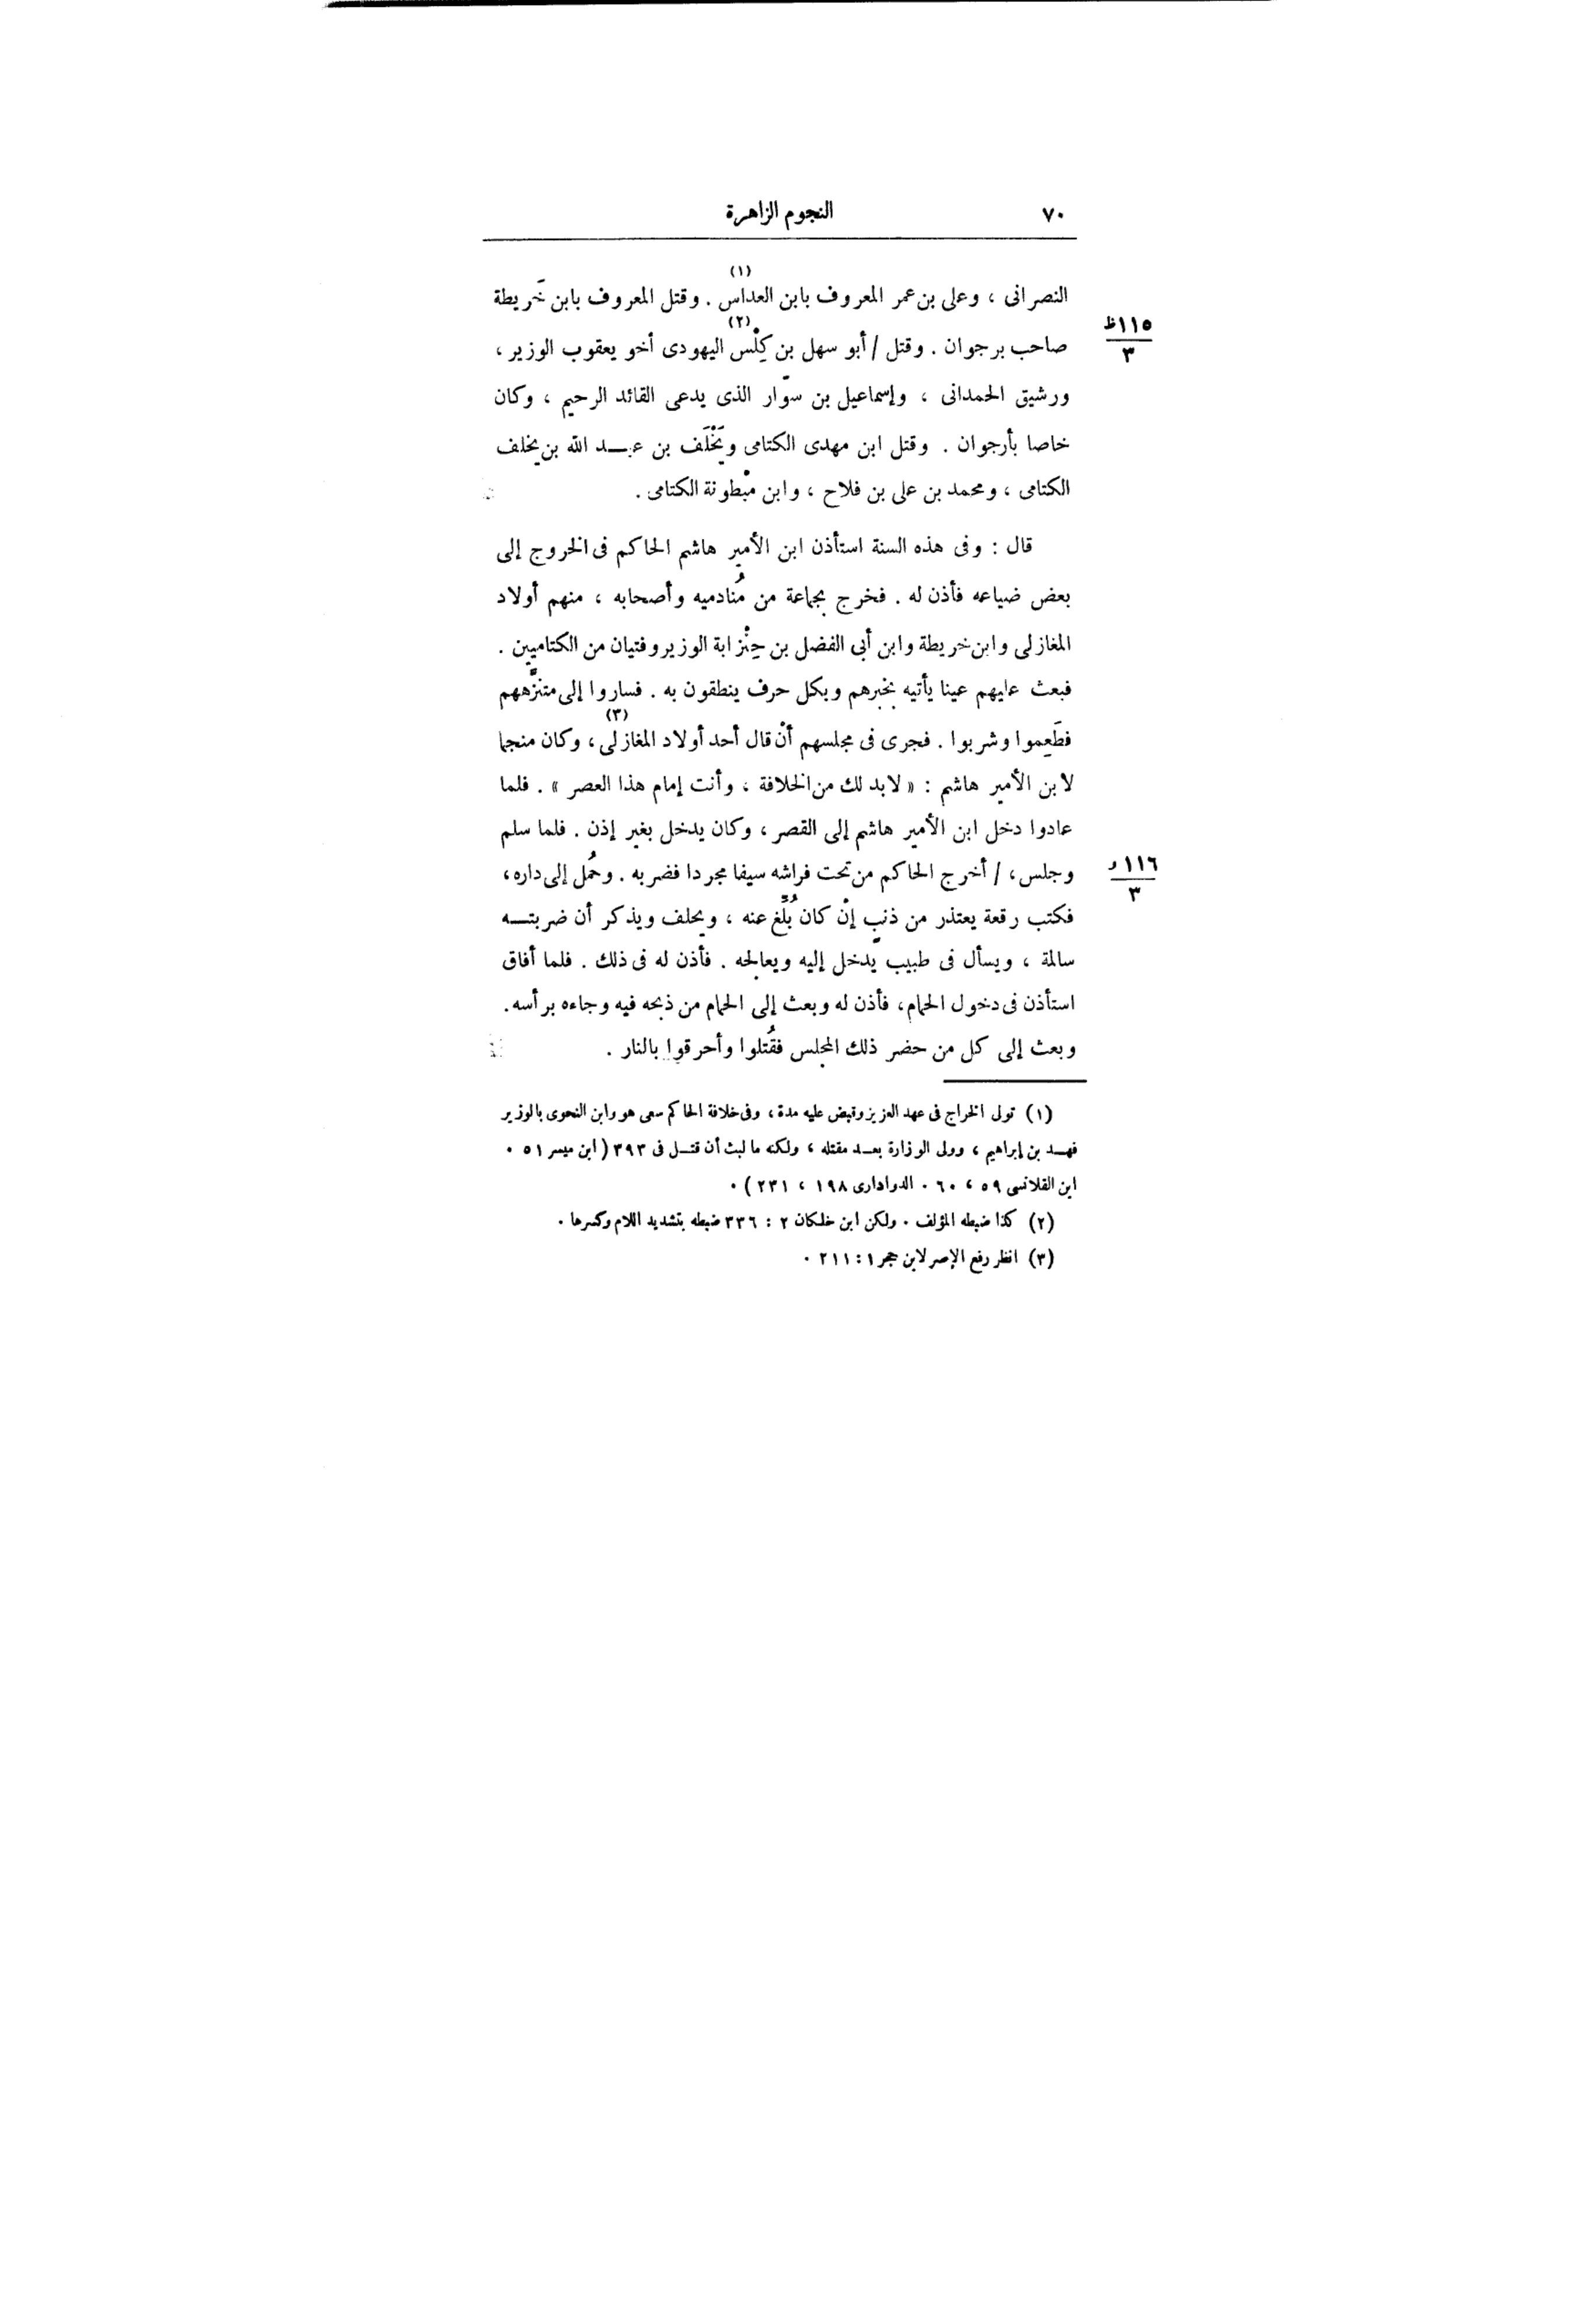 ٧٠ النجوم الزاهرة
النصرانى ، وعلى بن عمر المعروف بابن العداس (١) . وقتل المعروف بابن خَريطة
١١٥ظ
٣
صاحب برجوان . وقتل / أبو سهل بن كِلْس (٢) اليهودى أخو يعقوب الوزير ،
ورشيق الحمدانى ، وإسماعيل بن سوّار الذى يدعى القائد الرحيم ، وكان
خاصا بأرجوان . وقتل ابن مهدى الكتامى ويَخْلَف بن عبد الله بن يخلف
الكتامى ، ومحمد بن على بن فلاح ، وابن مْبطونة الكتامى .
قال : وفى هذه السنة استأذن ابن الأمير هاشم الحاكم فى الخروج إلى
بعض ضياعه فأذن له . فخرج بجماعة من مُنادميه وأصحابه ، منهم أولاد
المغازلى وابن خريطة وابن أبى الفضل بن حِنْزابة الوزير وفتيان من الكتاميين .
فبعث عليهم عينا يأتيه بخبرهم وبكل حرف ينطقون به . فساروا إلى متنزَّههم
فطَعِموا وشربوا . فجرى فى مجلسهم أنْ قال أحد أولاد المغازلى (٣) ، وكان منجما
لابن الأمير هاشم : « لابد لك من الخلافة ، وأنت إمام هذا العصر » . فلما
عادوا دخل ابن الأمير هاشم إلى القصر ، وكان يدخل بغير إذن . فلما سلم
١١٦ و
٣
وجلس ، / أخرج الحاكم من تحت فراشه سيفا مجردا فضربه . وحُمل إلى داره ،
فكتب رقعة يعتذر من ذنب إنْ كان بُلِّغ عنه ، ويحلف ويذكر أن ضربته
سالمة ، ويسأل فى طبيب يدخل إليه ويعالجه . فأذن له فى ذلك . فلما أفاق
استأذن فى دخول الحمام ، فأذن له وبعث إلى الحمام من ذبحه فيه وجاءه برأسه .
وبعث إلى كل من حضر ذلك المجلس فقُتلوا وأحرقوا بالنار .
(١) تولى الخراج فى عهد العزيز وقبض عليه مدة ، وفى خلافة الحاكم سعى هو وابن النحوى بالوزير
فهد بن إبراهيم ، وولى الوزارة بعد مقتله ، ولكنه ما لبث أن قتل فى ٣٩٣ ( ابن ميسر ٥١ .
ابن القلانسى ٥٩ ، ٦٠ . الدوادارى ١٩٨ ، ٢٣١ ) .
(٢) كذا ضبطه المؤلف . ولكن ابن خلكان ٢ : ٣٣٦ ضبطه بتشديد اللام وكسرها .
(٣) انظر رفع الإصر لابن حجر ١ : ٢١١ .